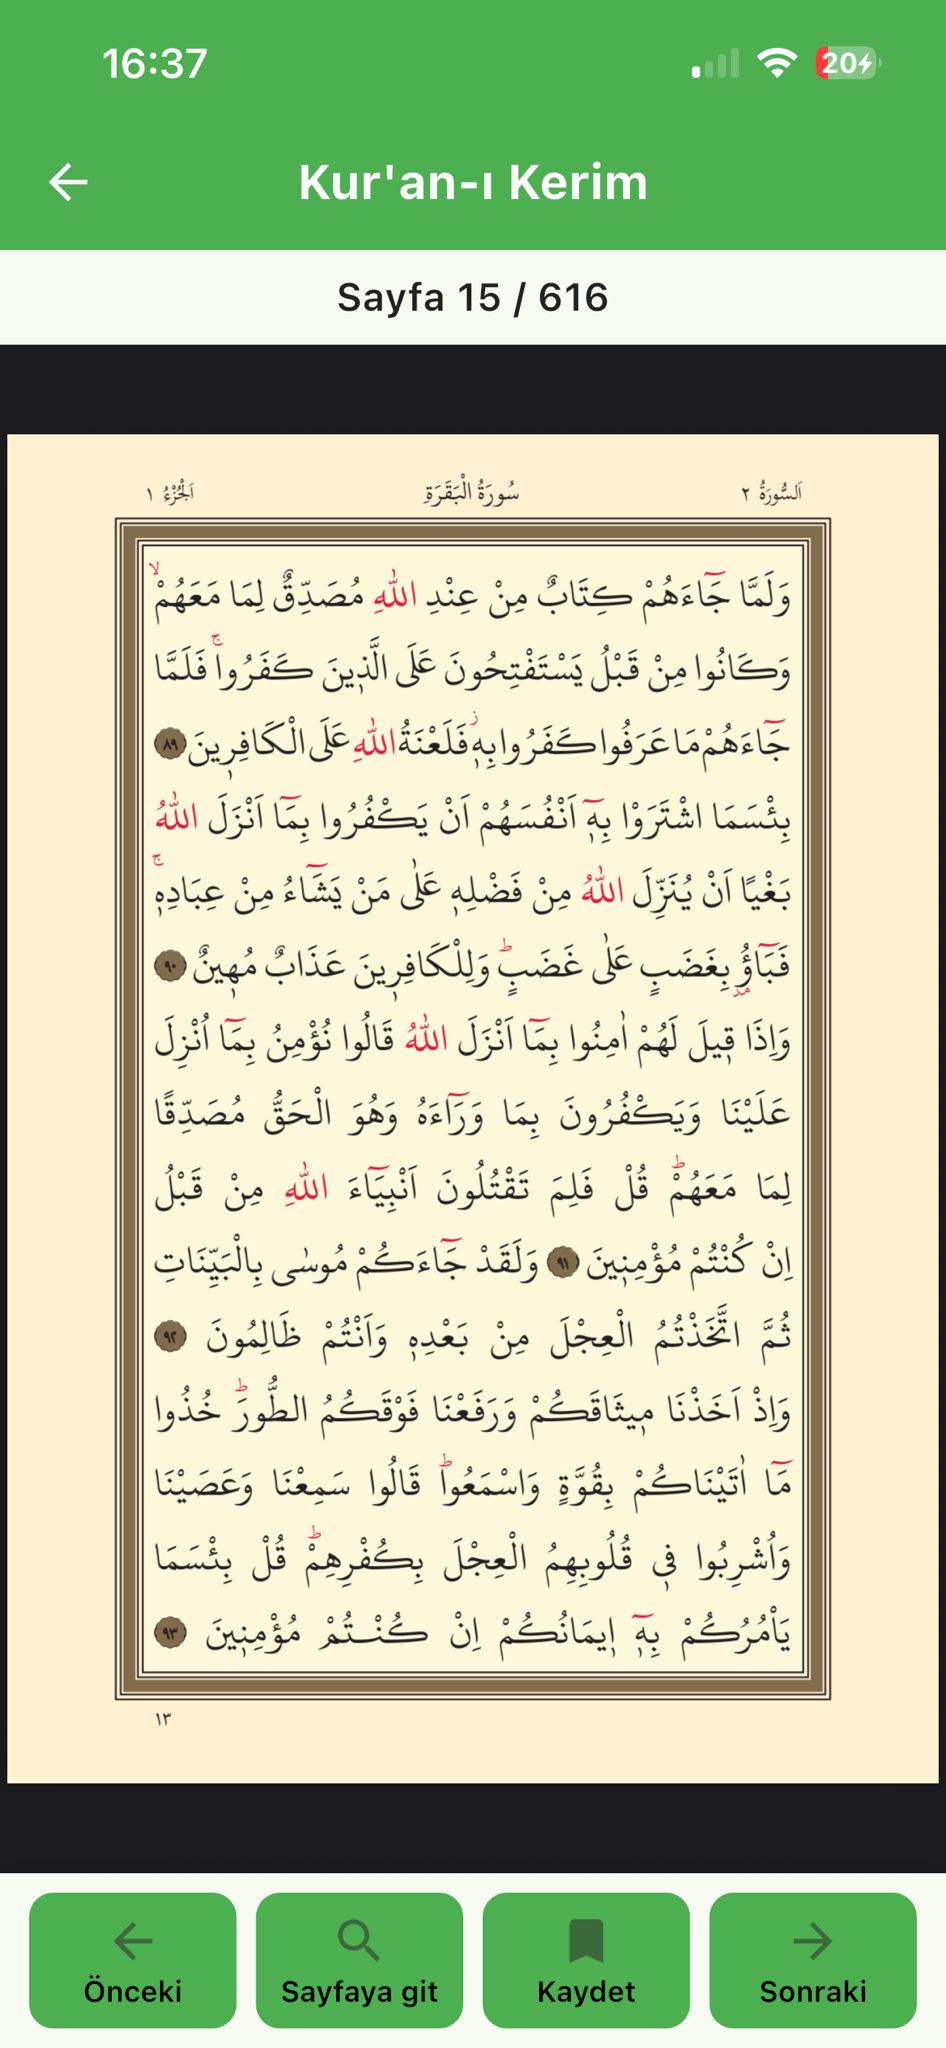 16:37
20
Kur'an-ı Kerim
Sayfa 15 / 616
اَلسُّورَةُ ٢ سُورَةُ الْبَقَرَةِ اَلْجُزْءُ ١
وَلَمَّا جَٓاءَهُمْ كِتَابٌ مِنْ عِنْدِ اللّٰهِ مُصَدِّقٌ لِمَا مَعَهُمْۙ
وَكَانُوا مِنْ قَبْلُ يَسْتَفْتِحُونَ عَلَى الَّذ۪ينَ كَفَرُواۚ فَلَمَّا
جَٓاءَهُمْ مَا عَرَفُوا كَفَرُوا بِه۪ۘ فَلَعْنَةُ اللّٰهِ عَلَى الْكَافِر۪ينَ ٨٩
بِئْسَمَا اشْتَرَوْا بِه۪ٓ اَنْفُسَهُمْ اَنْ يَكْفُرُوا بِمَٓا اَنْزَلَ اللّٰهُ
بَغْيًا اَنْ يُنَزِّلَ اللّٰهُ مِنْ فَضْلِه۪ عَلٰى مَنْ يَشَٓاءُ مِنْ عِبَادِه۪ۚ
فَبَٓاؤُ۫ بِغَضَبٍ عَلٰى غَضَبٍۜ وَلِلْكَافِر۪ينَ عَذَابٌ مُه۪ينٌ ٩٠
وَاِذَا ق۪يلَ لَهُمْ اٰمِنُوا بِمَٓا اَنْزَلَ اللّٰهُ قَالُوا نُؤْمِنُ بِمَٓا اُنْزِلَ
عَلَيْنَا وَيَكْفُرُونَ بِمَا وَرَٓاءَهُ وَهُوَ الْحَقُّ مُصَدِّقًا
لِمَا مَعَهُمْۜ قُلْ فَلِمَ تَقْتُلُونَ اَنْبِيَٓاءَ اللّٰهِ مِنْ قَبْلُ
اِنْ كُنْتُمْ مُؤْمِن۪ينَ ٩١ وَلَقَدْ جَٓاءَكُمْ مُوسٰى بِالْبَيِّنَاتِ
ثُمَّ اتَّخَذْتُمُ الْعِجْلَ مِنْ بَعْدِه۪ وَاَنْتُمْ ظَالِمُونَ ٩٢
وَاِذْ اَخَذْنَا م۪يثَاقَكُمْ وَرَفَعْنَا فَوْقَكُمُ الطُّورَۜ خُذُوا
مَٓا اٰتَيْنَاكُمْ بِقُوَّةٍ وَاسْمَعُواۜ قَالُوا سَمِعْنَا وَعَصَيْنَا
وَاُشْرِبُوا ف۪ي قُلُوبِهِمُ الْعِجْلَ بِكُفْرِهِمْۜ قُلْ بِئْسَمَا
يَأْمُرُكُمْ بِه۪ٓ ا۪يمَانُكُمْ اِنْ كُنْتُمْ مُؤْمِن۪ينَ ٩٣
١٣
Önceki
Sayfaya git
Kaydet
Sonraki